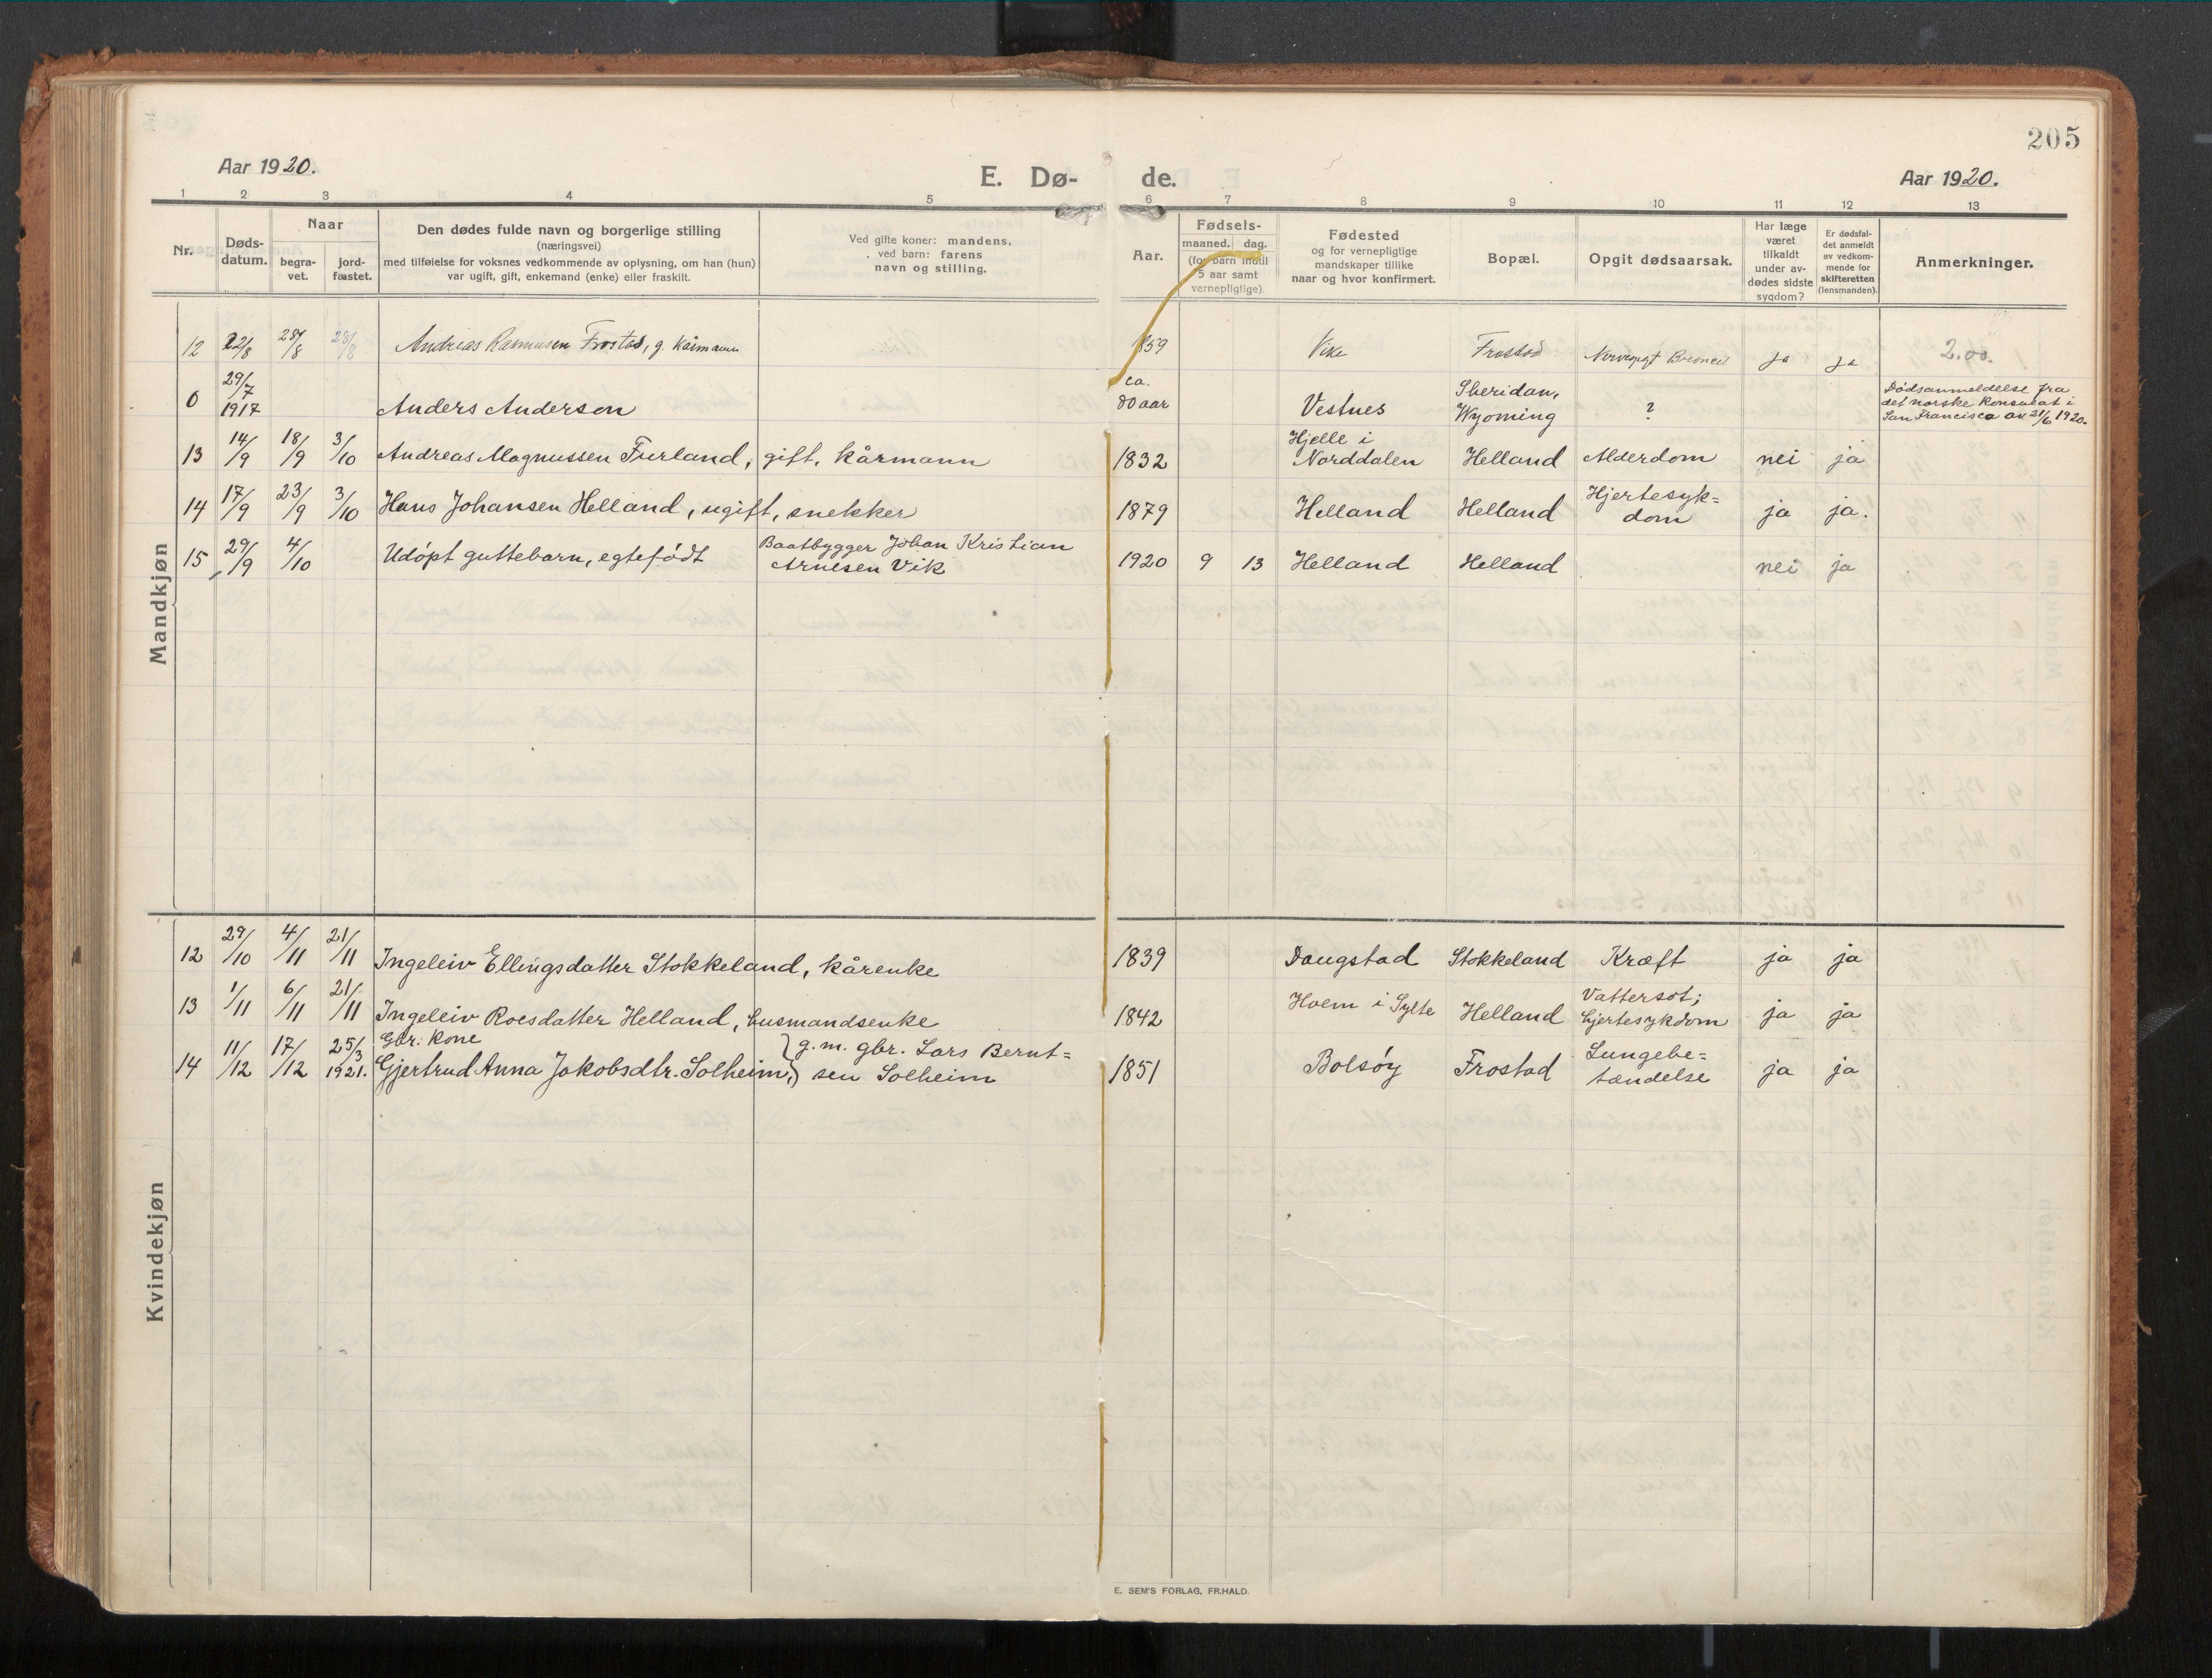 205
Aar 1920.
E. Dø- de.
Aar 1920.
1 2 3 4 5 6 7 8 9 10 11 12 13
Nr.
Døds-
datum.
Naar
begra-
vet.
jord-
fæstet.
Den dødes fulde navn og borgerlige stilling
(næringsvei)
med tilføielse for voksnes vedkommende av oplysning, om han (hun)
var ugift, gift, enkemand (enke) eller fraskilt.
Ved gifte koner: mandens.
ved barn: farens
navn og stilling.
Aar.
Fødsels-
maaned. dag.
(for barn indtil
5 aar samt
vernepligtige)
Fødested
og for vernepligtige
mandskaper tillike
naar og hvor konfirmert.
Bopæl.
Opgit dødsaarsak.
Har læge
været
tilkaldt
under av-
dødes sidste
sygdom?
Er dødsfal-
det anmeldt
av vedkom-
mende for
skifteretten
(lensmanden).
Anmerkninger.
Mandkjøn
12 22/8 28/8 28/8 Andreas Rasmussen Frostad, g. Kårmann 1859 Vike Frostad ja ja 2.00.
0 29/7 1917 Anders Anderson ca. 80 aar Vestnes Sheridan, Wyoming ?
Dødsanmeldelse fra
det norske Konsulat i
San Francisco av 21/6 1920.
13 14/9 18/9 3/10 Andreas Magnussen Furland, gift, kårmann 1832 Hjelle i Norddalen Helland Alderdom nei ja
14 17/9 23/9 3/10 Hans Johansen Helland, ugift, snekker 1879 Helland Helland Hjertesyk= dom ja ja.
15 29/9 4/10 Udøpt guttebarn, egtefødt Baatbygger Johan Kristian Arnesen Vik 1920 9 13 Helland Helland nei ja
Kvindekjøn
12 29/10 4/11 21/11 Ingeleiv Ellingsdatter Stokkeland, kårenke 1839 Daugstad Stokkeland Kræft ja ja
13 1/11 6/11 21/11 Ingeleiv Roesdatter Helland, husmandsenke 1842 Hoem i Sylte Helland Vattersot; hjertesykdom ja ja
Gbr. kone
14 11/12 17/12 25/3 1921. Gjertrud Anna Jakobsdtr. Solheim, } g. m. gbr. Lars Bernt= sen Solheim 1851 Bolsøy Frostad Lungebe= tændelse ja ja
E. SEM'S FORLAG, FR.HALD.